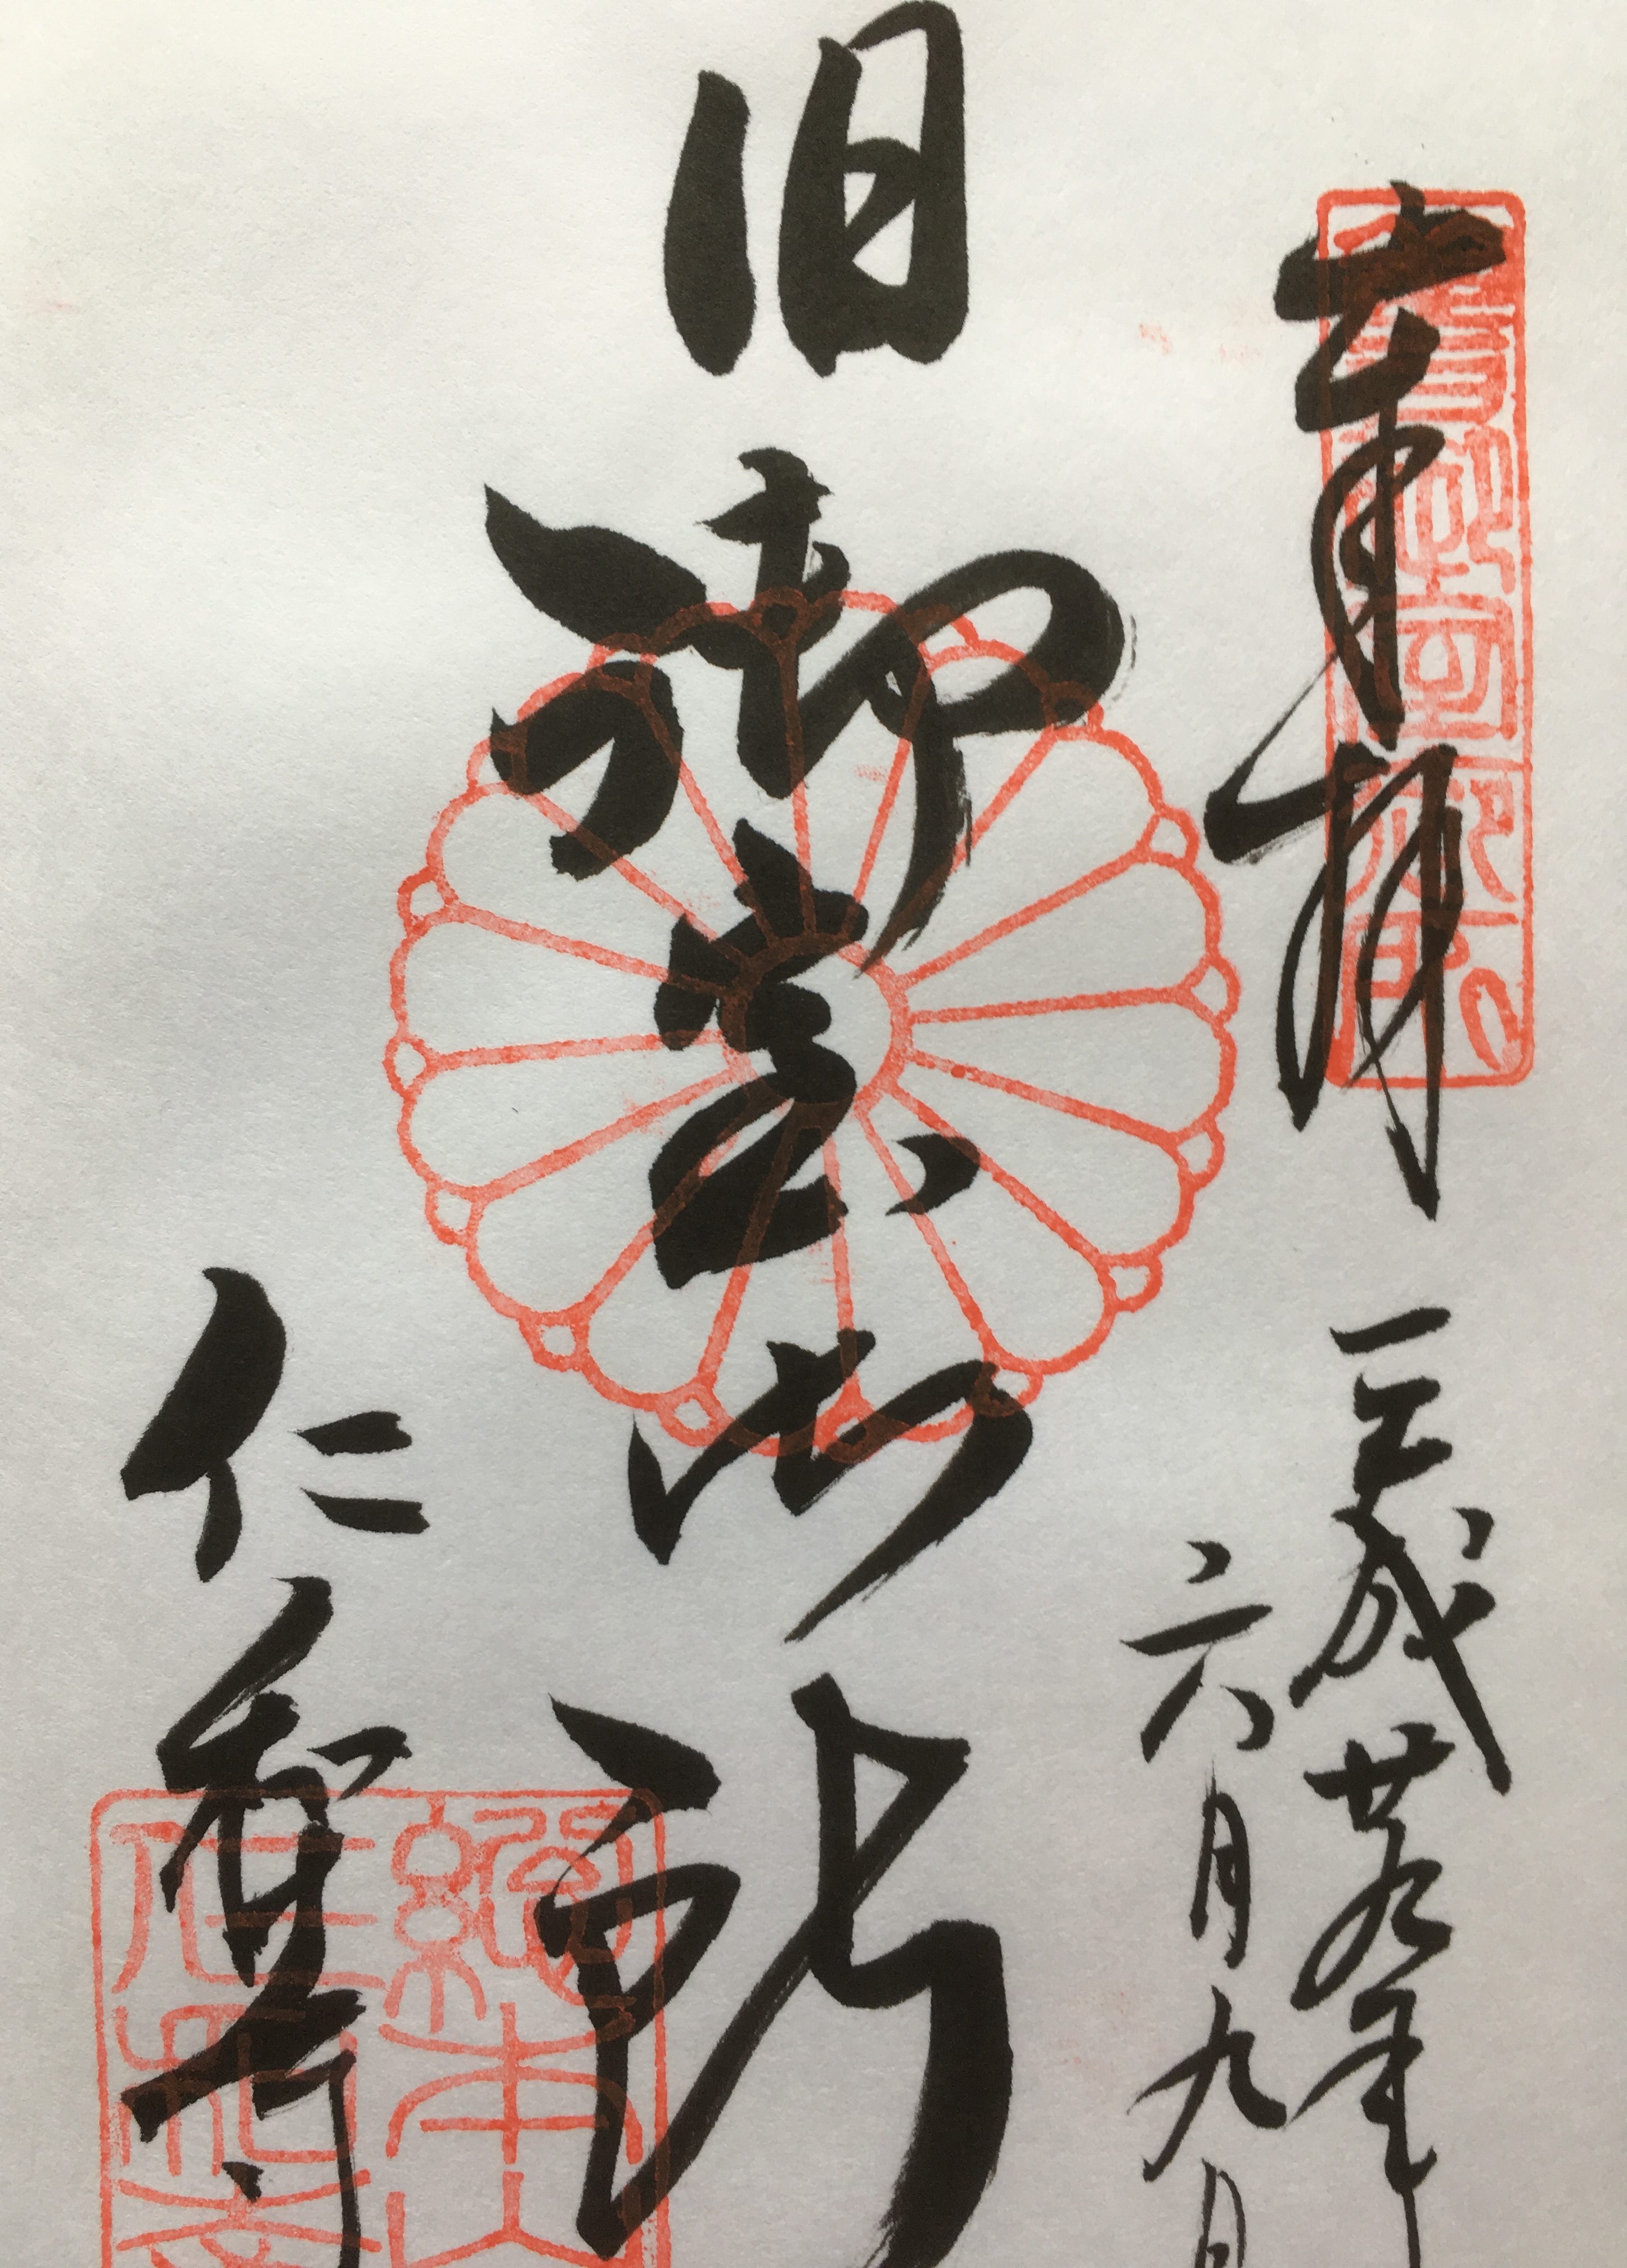 奉拝
平成廿九年
六月九日
旧御室御所
仁和寺